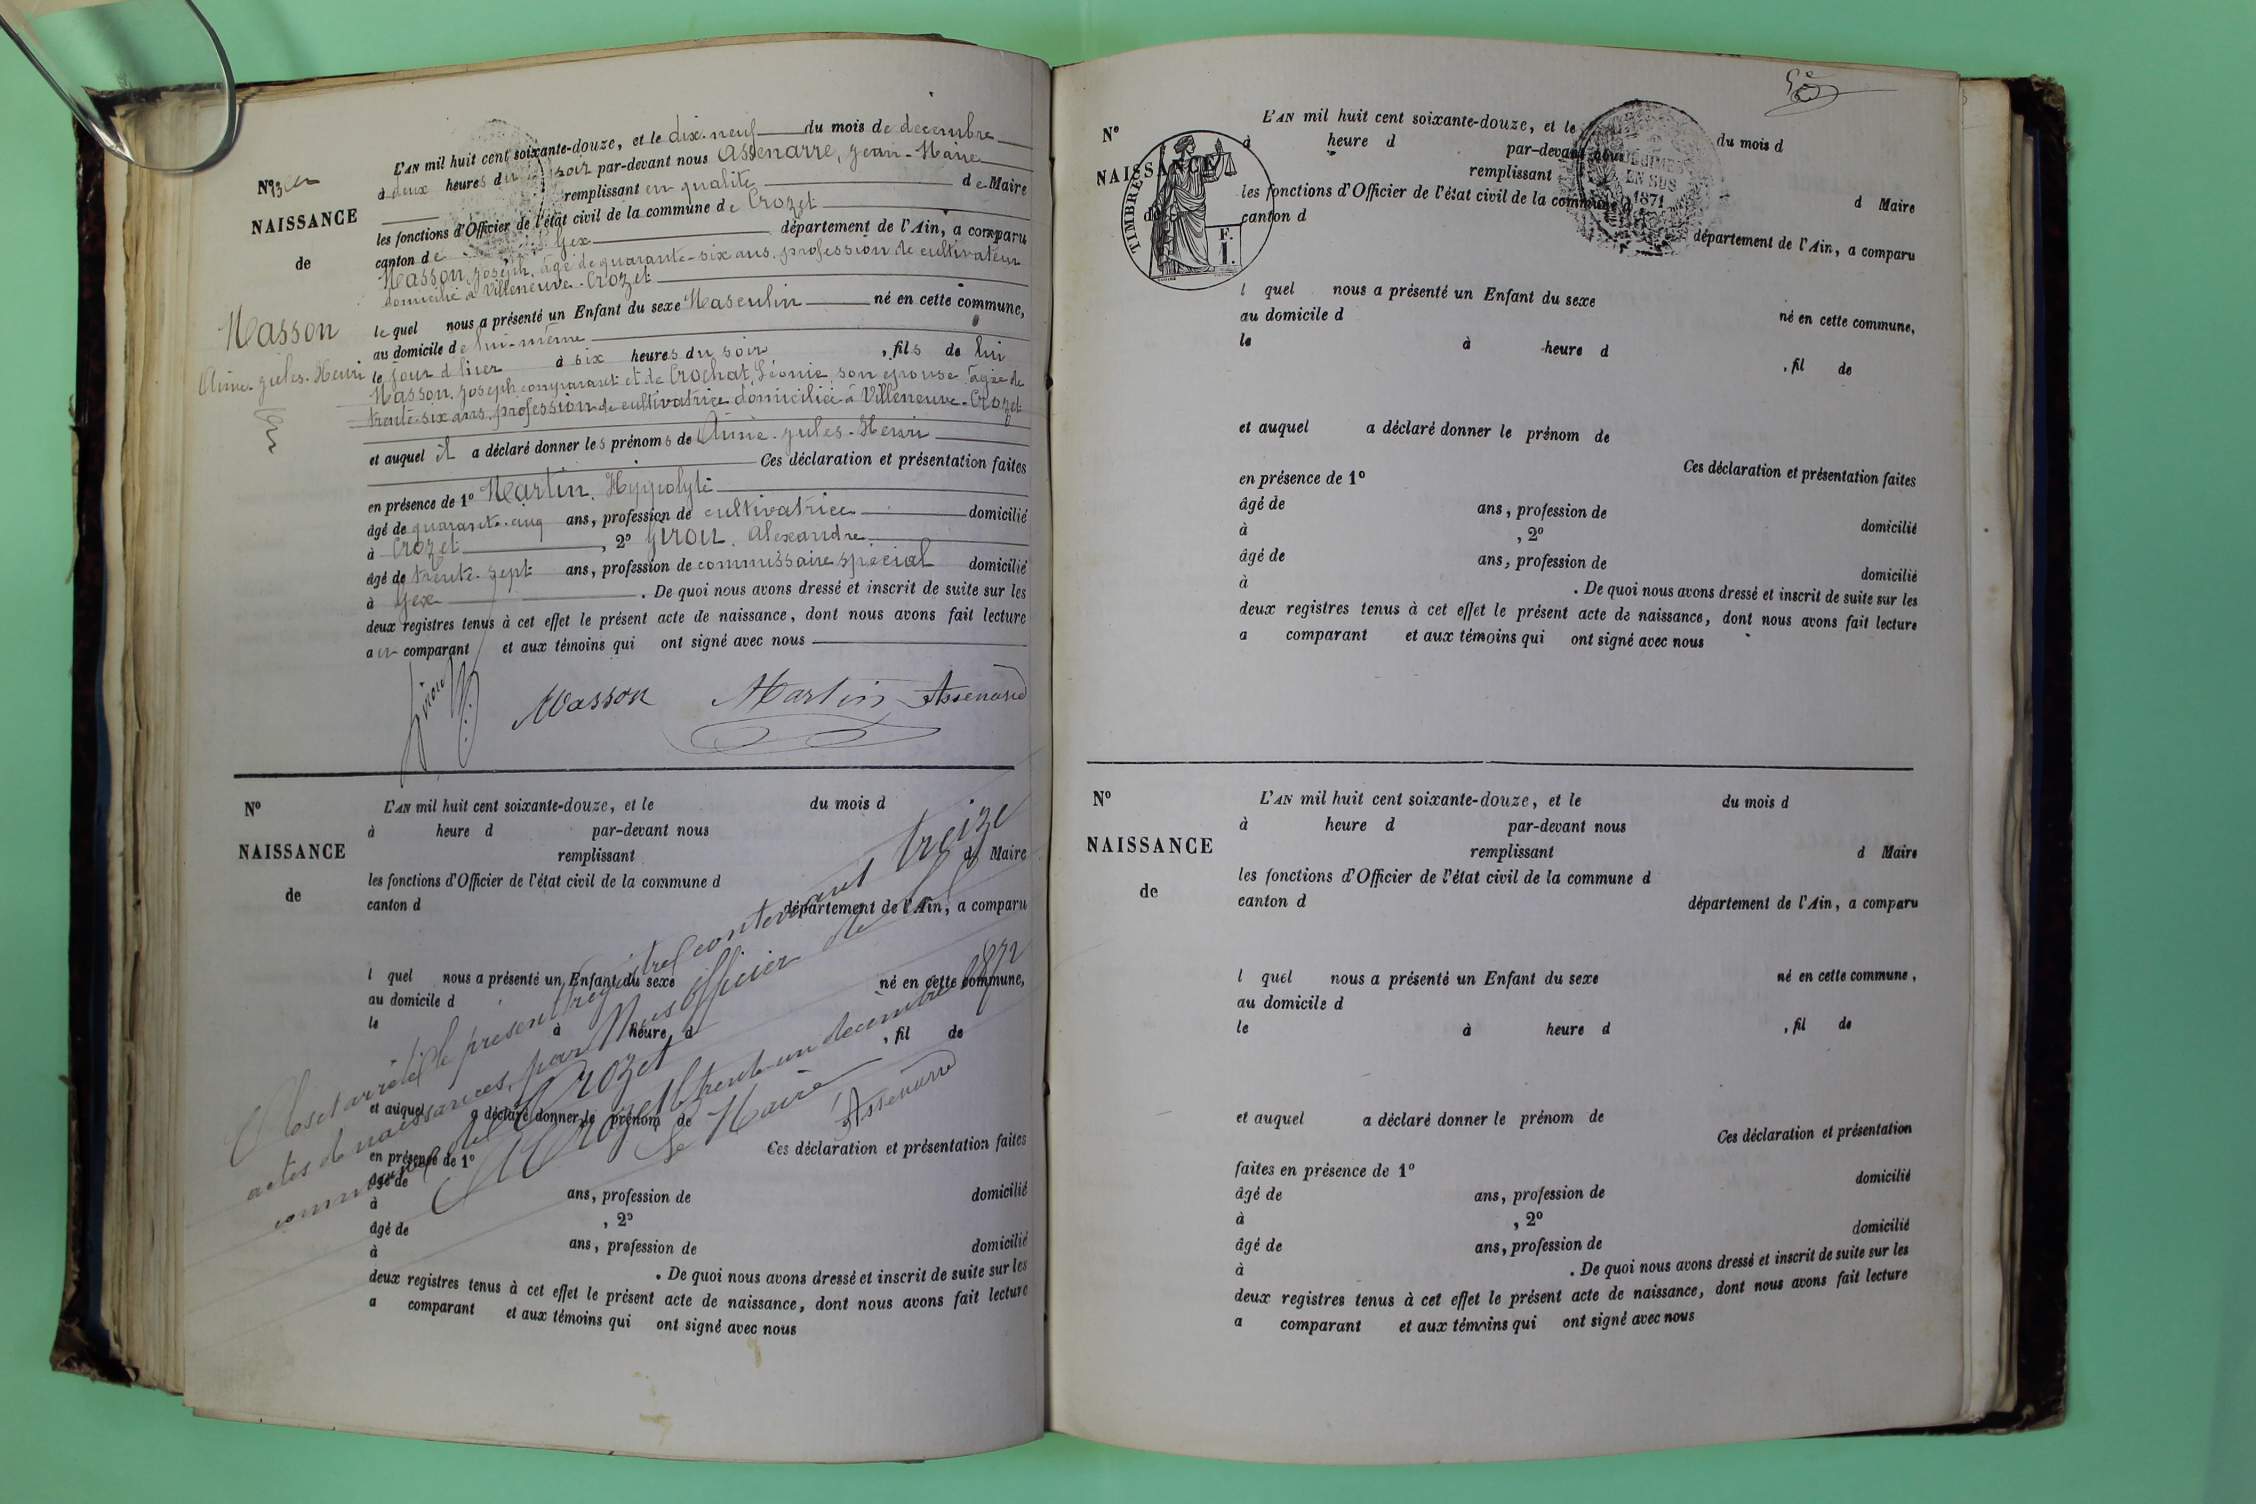 L'AN mil huit cent soixante-douze, et le dix-neuf du mois de decembre
à deux heures du soir par-devant nous Assenarre, Jean-Marie
remplissant en qualité de Maire
les fonctions d'Officier de l'état civil de la commune de Crozet
canton de Gex département de l'Ain, a comparu
Masson, Joseph, âgé de quarante-six ans, profession de cultivateur
domicilié à Villeneuve-Crozet
lequel nous a présenté un Enfant du sexe Masculin né en cette commune,
au domicile de lui-même
le jour d'hier à six heures du soir, fils de lui
Masson, Joseph, comparant et de Crochat, Léonie, son épouse âgée de
trente-six ans, profession de cultivatrice domiciliée à Villeneuve-Crozet
et auquel il a déclaré donner les prénoms de Aimé-Jules-Henri
Ces déclaration et présentation faites
en présence de 1º Martin, Hippolyte
âgé de quarante-cinq ans, profession de cultivatrice domicilié
à Crozet, 2º Girou, Alexandre
âgé de trente-sept ans, profession de commissaire spécial domicilié
à Gex. De quoi nous avons dressé et inscrit de suite sur les
deux registres tenus à cet effet le présent acte de naissance, dont nous avons fait lecture
au comparant et aux témoins qui ont signé avec nous
Nº 13
NAISSANCE
de
Masson
Aimé-Jules-Henri
Masson Martin Assenarre
Nº
NAISSANCE
de
L'AN mil huit cent soixante-douze, et le du mois d
à heure d par-devant nous
remplissant d Maire
les fonctions d'Officier de l'état civil de la commune d
canton d département de l'Ain, a comparu
l quel nous a présenté un Enfant du sexe né en cette commune,
au domicile d
le à heure d , fil de
et auquel a déclaré donner le prénom de
Ces déclaration et présentation faites
en présence de 1º
âgé de ans, profession de domicilié
à , 2º
âgé de ans, profession de domicilié
à . De quoi nous avons dressé et inscrit de suite sur les
deux registres tenus à cet effet le présent acte de naissance, dont nous avons fait lecture
a comparant et aux témoins qui ont signé avec nous
Clos et arrêté le présent registre contenant treize
actes de naissances, par Nous officier de l'état civil
commune de Crozet
A Crozet le trente-un decembre 1872
Le Maire
Assenarre
Nº
NAISSANCE
de
TIMBRE
F.
1.
EN SUS
1871
L'AN mil huit cent soixante-douze, et le du mois d
à heure d par-devant nous
remplissant d Maire
les fonctions d'Officier de l'état civil de la commune d
canton d département de l'Ain, a comparu
l quel nous a présenté un Enfant du sexe né en cette commune,
au domicile d
le à heure d , fil de
et auquel a déclaré donner le prénom de
Ces déclaration et présentation faites
en présence de 1º
âgé de ans, profession de domicilié
à , 2º
âgé de ans, profession de domicilié
à . De quoi nous avons dressé et inscrit de suite sur les
deux registres tenus à cet effet le présent acte de naissance, dont nous avons fait lecture
a comparant et aux témoins qui ont signé avec nous
Nº
NAISSANCE
de
L'AN mil huit cent soixante-douze, et le du mois d
à heure d par-devant nous
remplissant d Maire
les fonctions d'Officier de l'état civil de la commune d
canton d département de l'Ain, a comparu
l quel nous a présenté un Enfant du sexe né en cette commune,
au domicile d
le à heure d , fil de
et auquel a déclaré donner le prénom de
Ces déclaration et présentation
faites en présence de 1º
âgé de ans, profession de domicilié
à , 2º
âgé de ans, profession de domicilié
à . De quoi nous avons dressé et inscrit de suite sur les
deux registres tenus à cet effet le présent acte de naissance, dont nous avons fait lecture
a comparant et aux témoins qui ont signé avec nous